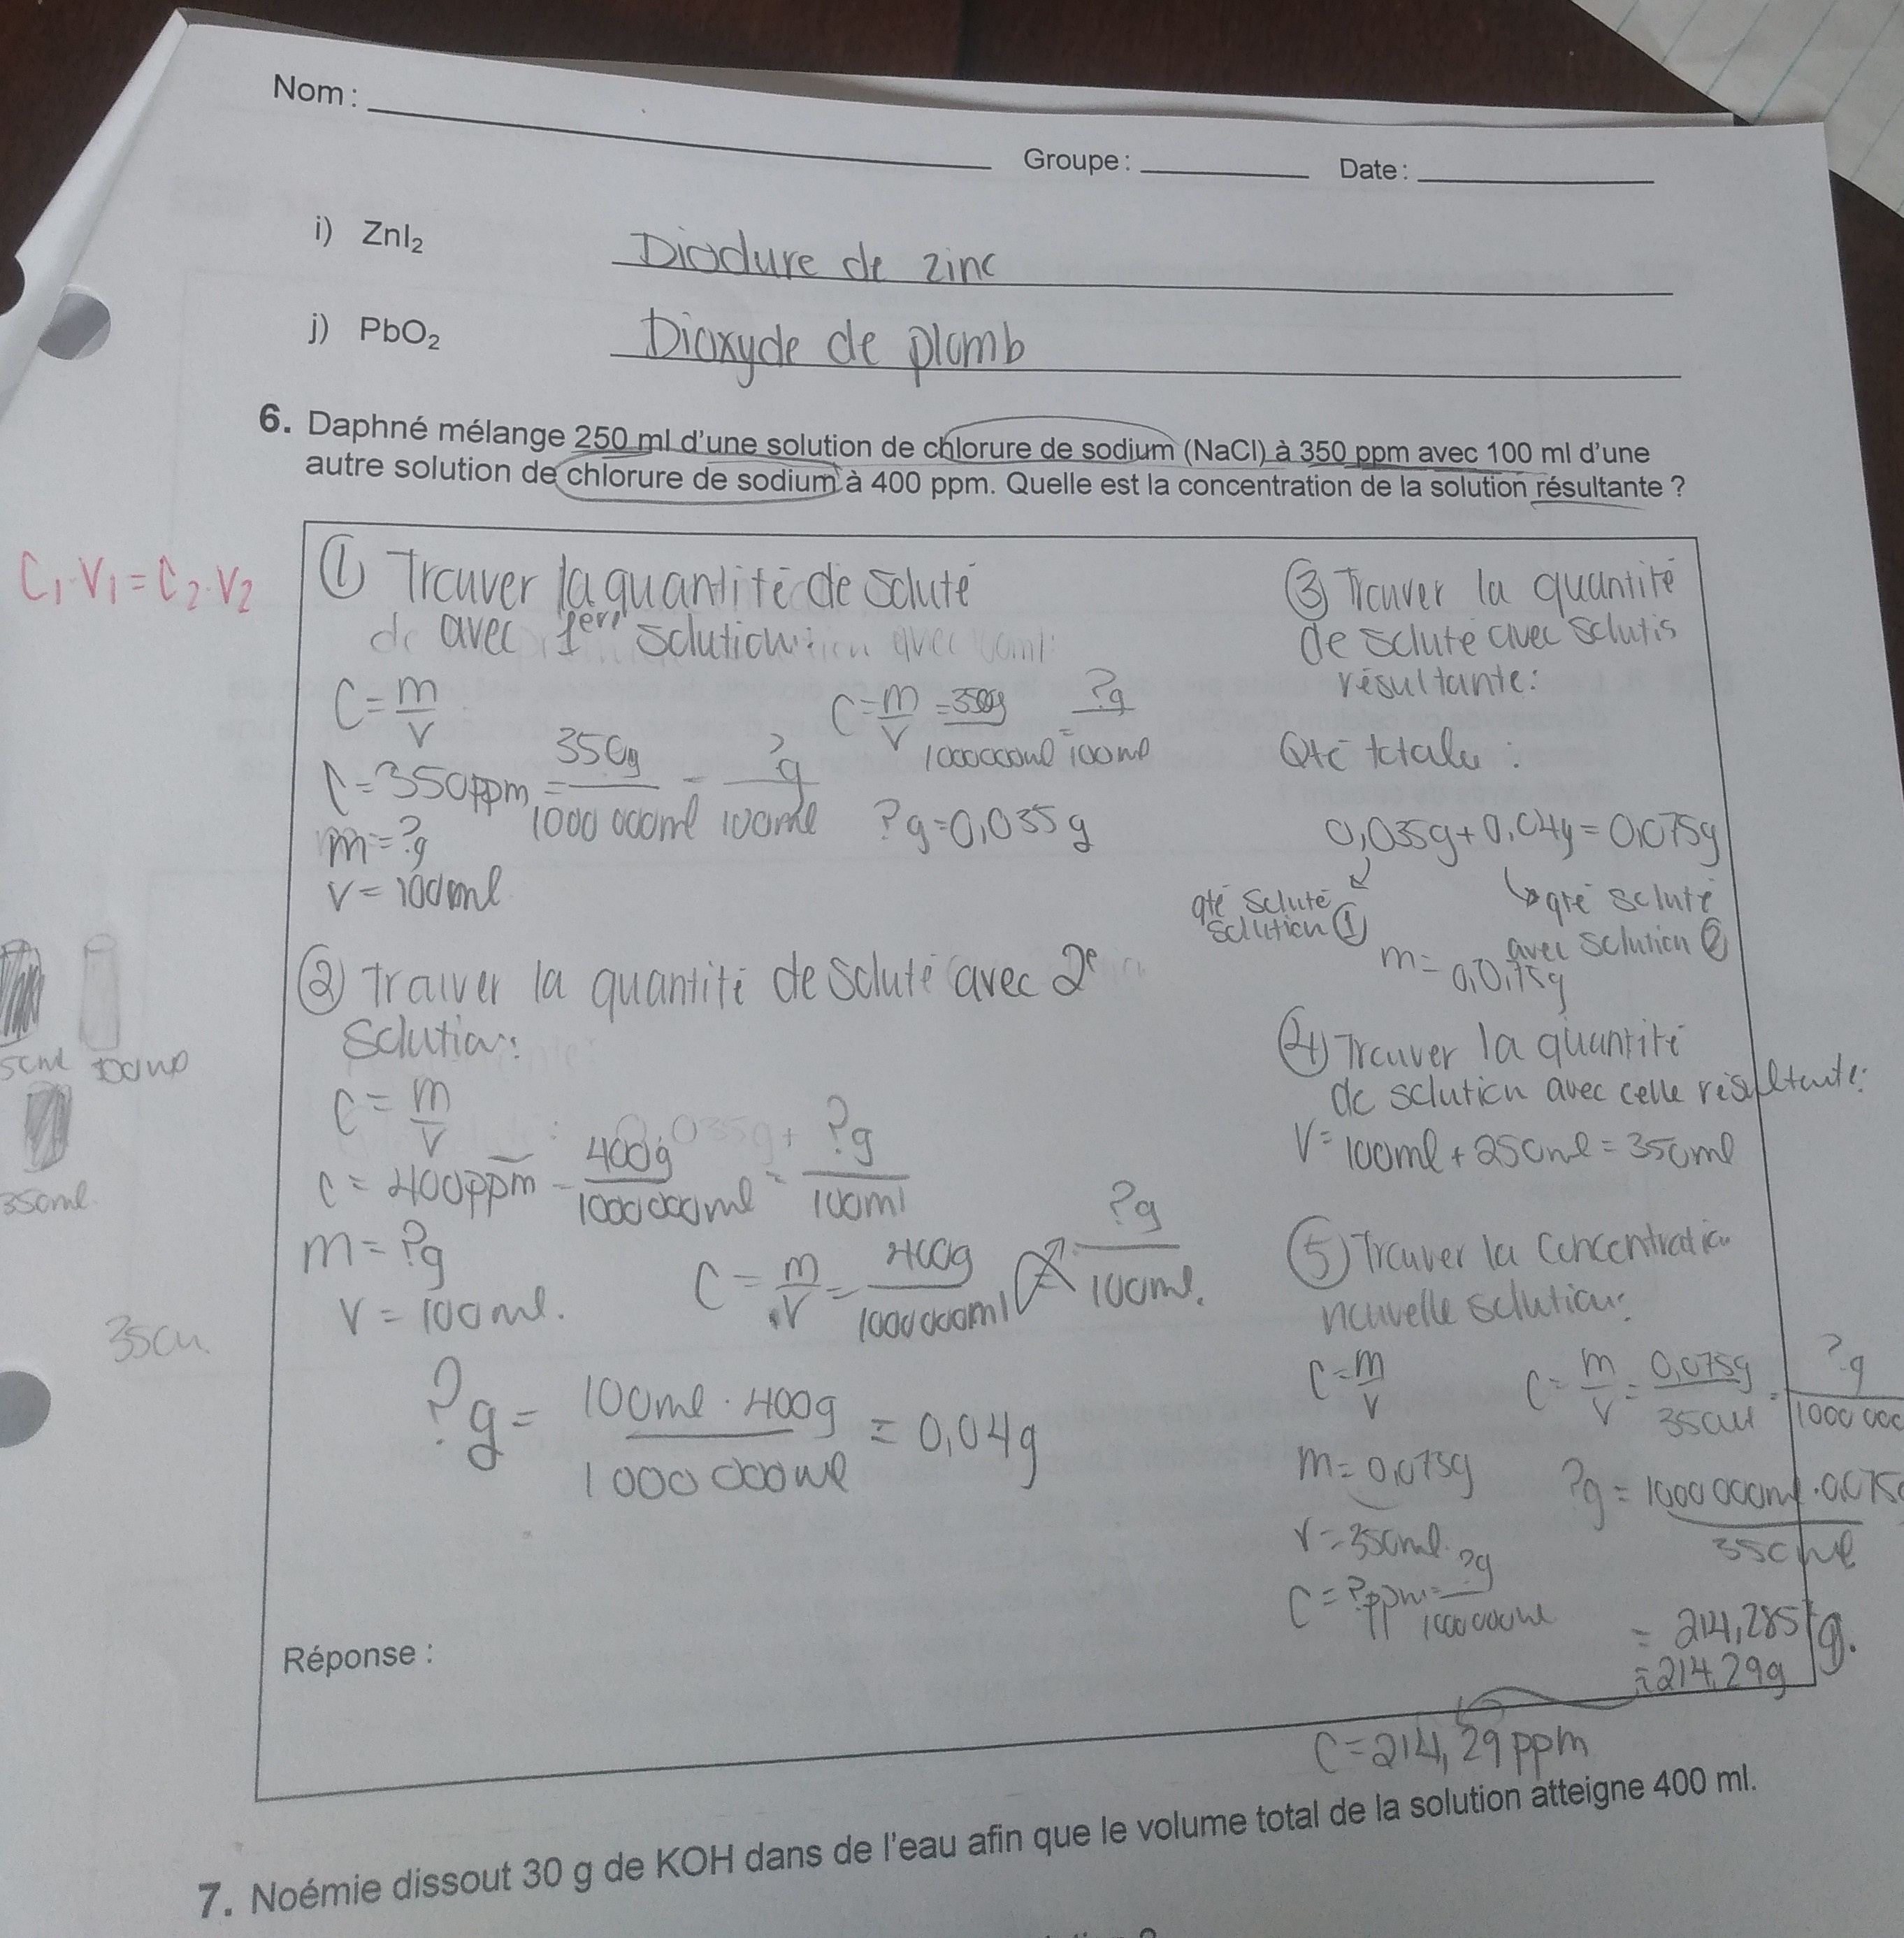 Nom :
Groupe : Date :
i) ZnI₂ Diodure de zinc
j) PbO₂ Dioxyde de plomb
6. Daphné mélange 250 ml d'une solution de chlorure de sodium (NaCl) à 350 ppm avec 100 ml d'une
autre solution de chlorure de sodium à 400 ppm. Quelle est la concentration de la solution résultante ?
C₁·V₁=C₂·V₂
① Trouver la quantité de soluté
avec 1ère solution:
C=m/v
C=350ppm=350g/1000 000ml=?g/100ml
m=?g
v=100ml
C=m/v=350g/1000000ml=?g/100ml
?g=0,035g
② Trouver la quantité de soluté avec 2e
solution:
C=m/v
C=400ppm=400g/1000 000ml=?g/100ml
m=?g
v=100ml.
C=m/v=400g/1000 000ml=?g/100ml.
?g=100ml·400g/1000 000ml=0,04g
③ Trouver la quantité
de soluté avec solutis
résultante:
Qté totale :
0,035g+0,04g=0,075g
qté soluté
solution ①
qté soluté
avec solution ②
m=0,075g
④ Trouver la quantité
de solution avec celle résultante:
V=100ml+250ml=350ml
⑤ Trouver la concentration
nouvelle solution:
C=m/v
m=0,075g
v=350ml.
C=?ppm=?g/1000 000ml
C=m/v=0,075g/350ml=?g/1000 000
?g=1000 000ml·0,075/350ml
=214,285g.
≈214,29g
C=214,29ppm
350ml.
Réponse :
7. Noémie dissout 30 g de KOH dans de l'eau afin que le volume total de la solution atteigne 400 ml.